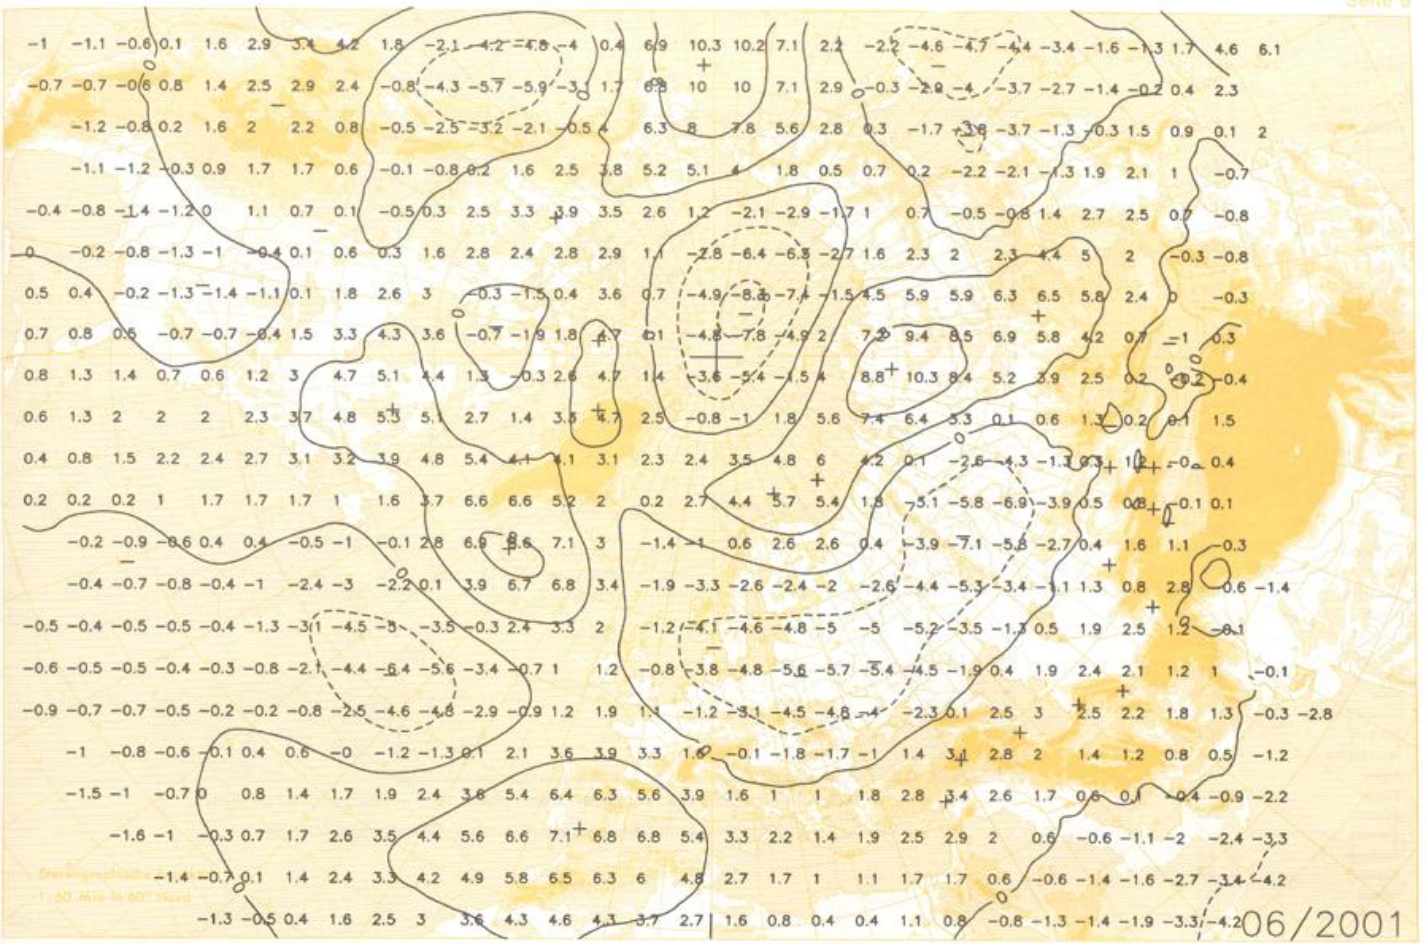 Seite 8
-1 -1.1 -0.6 0.1 1.6 2.9 3.4 4.2 1.8 -2.1 -4.2 -4.8 -4 0.4 6.9 10.3 10.2 7.1 2.2 -2.2 -4.6 -4.7 -4.4 -3.4 -1.6 -1.3 1.7 4.6 6.1
-0.7 -0.7 -0.6 0.8 1.4 2.5 2.9 2.4 -0.8 -4.3 -5.7 -5.9 -3.1 1.7 6.8 10 10 7.1 2.9 -0.3 -2.9 -4 -3.7 -2.7 -1.4 -0.2 0.4 2.3
-1.2 -0.8 0.2 1.6 2 2.2 0.8 -0.5 -2.5 -3.2 -2.1 -0.5 4 6.3 8 7.8 5.6 2.8 0.3 -1.7 -3.8 -3.7 -1.3 -0.3 1.5 0.9 0.1 2
-1.1 -1.2 -0.3 0.9 1.7 1.7 0.6 -0.1 -0.8 0.2 1.6 2.5 3.8 5.2 5.1 4 1.8 0.5 0.7 0.2 -2.2 -2.1 -1.3 1.9 2.1 1 -0.7
-0.4 -0.8 -1.4 -1.2 0 1.1 0.7 0.1 -0.5 0.3 2.5 3.3 3.9 3.5 2.6 1.2 -2.1 -2.9 -1.7 1 0.7 -0.5 -0.8 1.4 2.7 2.5 0.7 -0.8
0 -0.2 -0.8 -1.3 -1 -0.4 0.1 0.6 0.3 1.6 2.8 2.4 2.8 2.9 1.1 -2.8 -6.4 -6.3 -2.7 1.6 2.3 2 2.3 4.4 5 2 -0.3 -0.8
0.5 0.4 -0.2 -1.3 -1.4 -1.1 0.1 1.8 2.6 3 -0.3 -1.5 0.4 3.6 0.7 -4.9 -8.3 -7.4 -1.5 4.5 5.9 5.9 6.3 6.5 5.8 2.4 0 -0.3
0.7 0.8 0.5 -0.7 -0.7 -0.4 1.5 3.3 4.3 3.6 -0.7 -1.9 1.8 4.7 0.1 -4.8 -7.8 -4.9 2 7.2 9.4 8.5 6.9 5.8 4.2 0.7 -1 0.3
0.8 1.3 1.4 0.7 0.6 1.2 3 4.7 5.1 4.4 1.3 -0.3 2.6 4.7 1.4 -3.6 -5.4 -1.5 4 8.8 10.3 8.4 5.2 3.9 2.5 0.2 -0.2 -0.4
0.6 1.3 2 2 2 2.3 3.7 4.8 5.3 5.1 2.7 1.4 3.5 4.7 2.5 -0.8 -1 1.8 5.6 7.4 6.4 3.3 0.1 0.6 1.3 0.2 0.1 1.5
0.4 0.8 1.5 2.2 2.4 2.7 3.1 3.2 3.9 4.8 5.4 4.1 4.1 3.1 2.3 2.4 3.5 4.8 6 4.2 0.1 -2.6 -4.3 -1.3 0.3 1.2 -0 0.4
0.2 0.2 0.2 1 1.7 1.7 1.7 1 1.6 3.7 6.6 6.6 5.2 2 0.2 2.7 4.4 5.7 5.4 1.8 -3.1 -5.8 -6.9 -3.9 0.5 0.8 -0.1 0.1
-0.2 -0.9 -0.6 0.4 0.4 -0.5 -1 -0.1 2.8 6.9 8.6 7.1 3 -1.4 -1 0.6 2.6 2.6 0.4 -3.9 -7.1 -5.8 -2.7 0.4 1.6 1.1 -0.3
-0.4 -0.7 -0.8 -0.4 -1 -2.4 -3 -2.2 0.1 3.9 6.7 6.8 3.4 -1.9 -3.3 -2.6 -2.4 -2 -2.6 -4.4 -5.3 -3.4 -1.1 1.3 0.8 2.8 0.6 -1.4
-0.5 -0.4 -0.5 -0.5 -0.4 -1.3 -3.1 -4.5 -5 -3.5 -0.3 2.4 3.3 2 -1.2 -4.1 -4.6 -4.8 -5 -5 -5.2 -3.5 -1.3 0.5 1.9 2.5 1.2 -0.1
-0.6 -0.5 -0.5 -0.4 -0.3 -0.8 -2.1 -4.4 -6.4 -5.6 -3.4 -0.7 1 1.2 -0.8 -3.8 -4.8 -5.6 -5.7 -5.4 -4.5 -1.9 0.4 1.9 2.4 2.1 1.2 1 -0.1
-0.9 -0.7 -0.7 -0.5 -0.2 -0.2 -0.8 -2.5 -4.6 -4.8 -2.9 -0.9 1.2 1.9 1.1 -1.2 -3.1 -4.5 -4.8 -4 -2.3 0.1 2.5 3 2.5 2.2 1.8 1.3 -0.3 -2.8
-1 -0.8 -0.6 -0.1 0.4 0.6 -0 -1.2 -1.3 0.1 2.1 3.6 3.9 3.3 1.6 -0.1 -1.8 -1.7 -1 1.4 3.1 2.8 2 1.4 1.2 0.8 0.5 -1.2
-1.5 -1 -0.7 0 0.8 1.4 1.7 1.9 2.4 3.8 5.4 6.4 6.3 5.6 3.9 1.6 1 1 1.8 2.8 3.4 2.6 1.7 0.6 0.1 -0.4 -0.9 -2.2
-1.6 -1 -0.3 0.7 1.7 2.6 3.5 4.4 5.6 6.6 7.1 6.8 6.8 5.4 3.3 2.2 1.4 1.9 2.5 2.9 2 0.6 -0.6 -1.1 -2 -2.4 -3.3
Stereographische
-1.4 -0.7 0.1 1.4 2.4 3.3 4.2 4.9 5.8 6.5 6.3 6 4.8 2.7 1.7 1 1.1 1.7 1.7 0.6 -0.6 -1.4 -1.6 -2.7 -3.4 -4.2
1:60 Mio in 60° Nord
-1.3 -0.5 0.4 1.6 2.5 3 3.6 4.3 4.6 4.3 3.7 2.7 1.6 0.8 0.4 0.4 1.1 0.8 -0.8 -1.3 -1.4 -1.9 -3.3 -4.2
06/2001